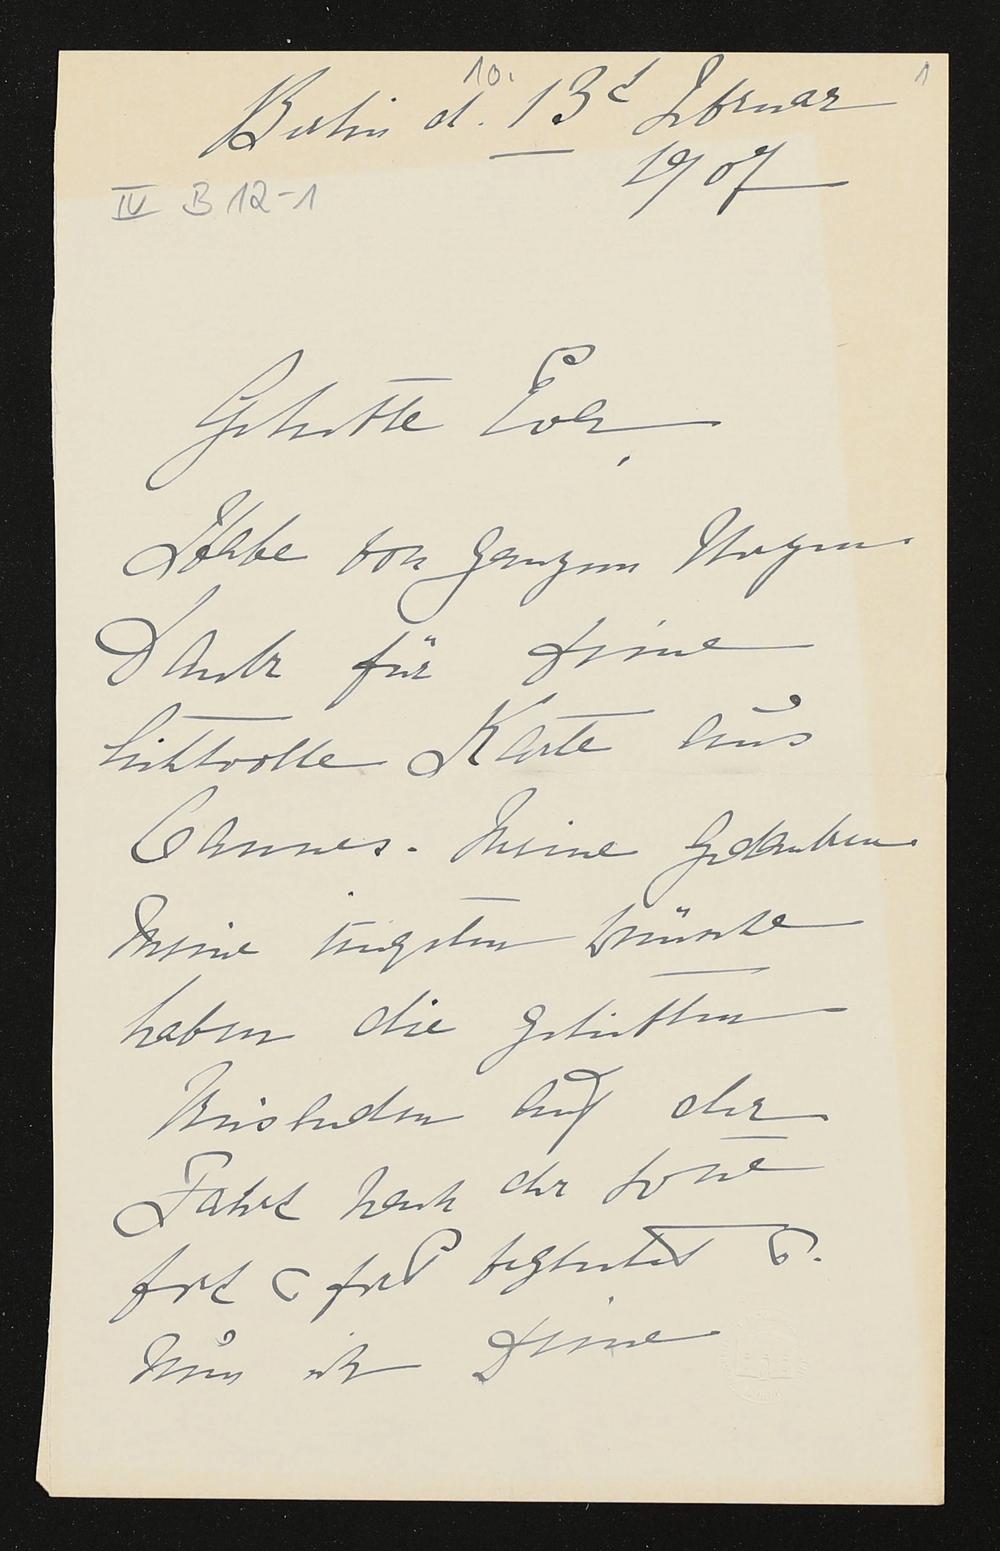 10.
1
Berlin d. 13t Februar
1907
IV B 12-1
Geliebte Eva,
Habe von ganzem Herzen
Dank für Deine
lichtvolle Karte aus
Cannes. Meine Gedanken
Meine innigsten Wünsche
haben die geliebten
Reisenden auf der
Fahrt nach der Sonne
fort & fort begleitet
Nun ist Deine